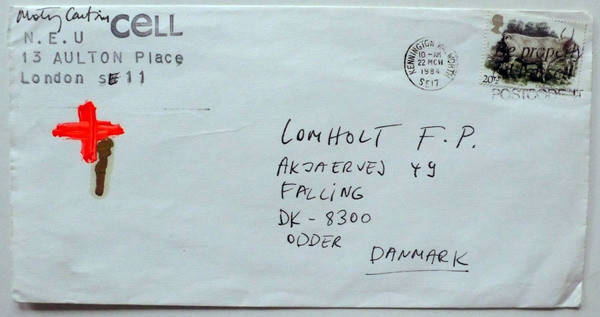 CELL
N.E.U
13 AULTON Place
London SE11
KENNINGTON
10-AM
22 MCH
1984
SE17
20½
POSTCODE IT
LOMHOLT F.P.
AKJAERVEJ 49
FALLING
DK-8300
ODDER
DANMARK